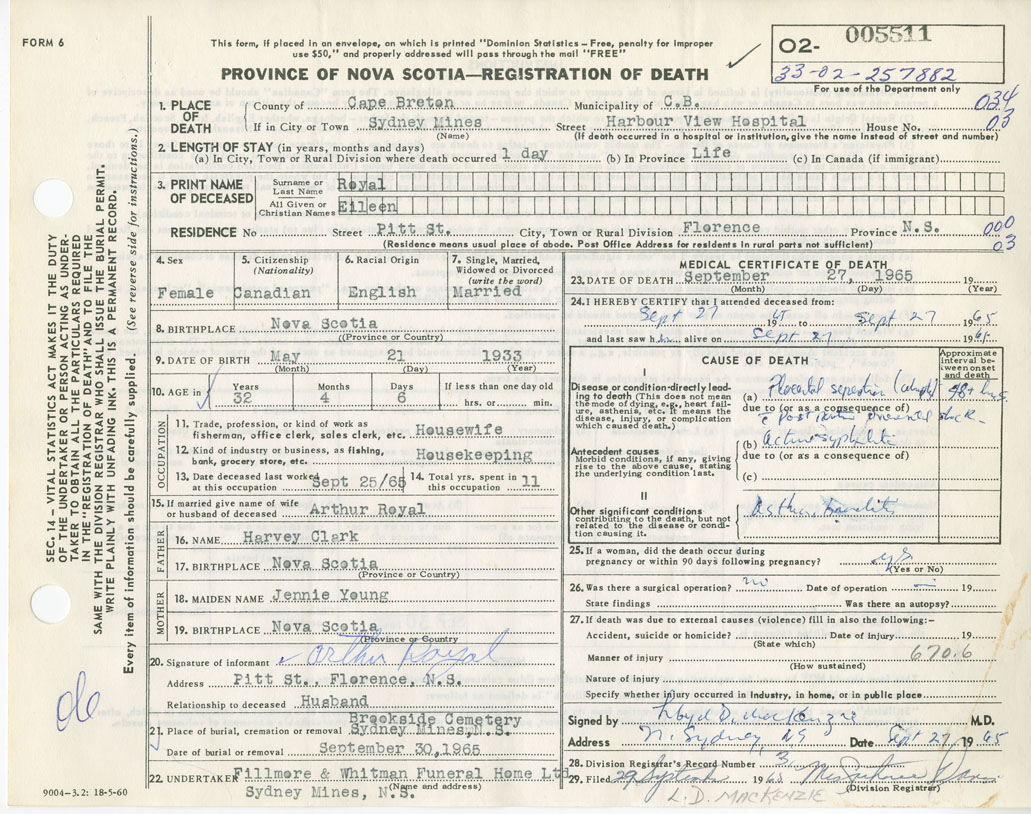 FORM 6
This form, if placed in an envelope, on which is printed "Dominion Statistics – Free, penalty for improper
use $50," and properly addressed will pass through the mail "FREE"
PROVINCE OF NOVA SCOTIA—REGISTRATION OF DEATH
O2- 005511
33-02-257882
For use of the Department only
034
03
1. PLACE OF DEATH
County of Cape Breton Municipality of C.B.
If in City or Town Sydney Mines Street Harbour View Hospital House No.
(Name) (If death occurred in a hospital or institution, give the name instead of street and number)
2. LENGTH OF STAY (in years, months and days)
(a) In City, Town or Rural Division where death occurred 1 day (b) In Province Life (c) In Canada (if immigrant)
3. PRINT NAME OF DECEASED
Surname or Last Name Royal
All Given or Christian Names Eileen
RESIDENCE No Street Pitt St. City, Town or Rural Division Florence Province N.S.
(Residence means usual place of abode. Post Office Address for residents in rural parts not sufficient)
000
03
4. Sex Female
5. Citizenship (Nationality) Canadian
6. Racial Origin English
7. Single, Married, Widowed or Divorced (write the word) Married
8. BIRTHPLACE Nova Scotia
(Province or Country)
9. DATE OF BIRTH May 21 1933
(Month) (Day) (Year)
10. AGE in Years 32 Months 4 Days 6 If less than one day old hrs. or min.
OCCUPATION
11. Trade, profession, or kind of work as
fisherman, office clerk, sales clerk, etc. Housewife
12. Kind of industry or business, as fishing,
bank, grocery store, etc. Housekeeping
13. Date deceased last worked at this occupation Sept 25/65
14. Total yrs. spent in this occupation 11
15. If married give name of wife
or husband of deceased Arthur Royal
FATHER
16. NAME Harvey Clark
17. BIRTHPLACE Nova Scotia
(Province or Country)
MOTHER
18. MAIDEN NAME Jennie Young
19. BIRTHPLACE Nova Scotia
(Province or Country
20. Signature of informant Arthur Royal
Address Pitt St., Florence, N.S.
Relationship to deceased Husband
Brookside Cemetery
21. Place of burial, cremation or removal Sydney Mines, N.S.
Date of burial or removal September 30, 1965
22. UNDERTAKER Fillmore & Whitman Funeral Home Ltd
Sydney Mines, N.S.
(Name and address)
MEDICAL CERTIFICATE OF DEATH
23. DATE OF DEATH September 27, 1965 19
(Month) (Day) (Year)
24. I HEREBY CERTIFY that I attended deceased from:
Sept 27 19 65 to Sept 27 1965
and last saw h alive on Sept 27 19
CAUSE OF DEATH
Approximate interval between onset and death
I
Disease or condition directly leading to death (This does not mean the mode of dying, e.g., heart failure, asthenia, etc. It means the disease, injury, or complication which caused death.)
(a) Placental
due to (or as a consequence of)
Antecedent causes
Morbid conditions, if any, giving rise to the above cause, stating the underlying condition last.
(b)
due to (or as a consequence of)
(c)
II
Other significant conditions
contributing to the death, but not related to the disease or condition causing it.
25. If a woman, did the death occur during
pregnancy or within 90 days following pregnancy? yes
(Yes or No)
26. Was there a surgical operation? no Date of operation — 19
State findings Was there an autopsy?
27. If death was due to external causes (violence) fill in also the following:–
Accident, suicide or homicide? Date of injury 19
(State which)
Manner of injury 670.6
(How sustained)
Nature of injury
Specify whether injury occurred in industry, in home, or in public place
Signed by Lloyd D. MacKenzie M.D.
Address N. Sydney, NS Date Sept 27, 1965
28. Division Registrar's Record Number 3
29. Filed 29 September 1965
(Division Registrar)
L.D. MACKENZIE
SEC. 14 – VITAL STATISTICS ACT MAKES IT THE DUTY
OF THE UNDERTAKER OR PERSON ACTING AS UNDER-
TAKER TO OBTAIN ALL THE PARTICULARS REQUIRED
IN THE "REGISTRATION OF DEATH" AND TO FILE THE
SAME WITH THE DIVISION REGISTRAR WHO SHALL ISSUE THE BURIAL PERMIT.
WRITE PLAINLY WITH UNFADING INK. THIS IS A PERMANENT RECORD.
Every item of information should be carefully supplied. (See reverse side for instructions.)
9004-3.2: 18-5-60